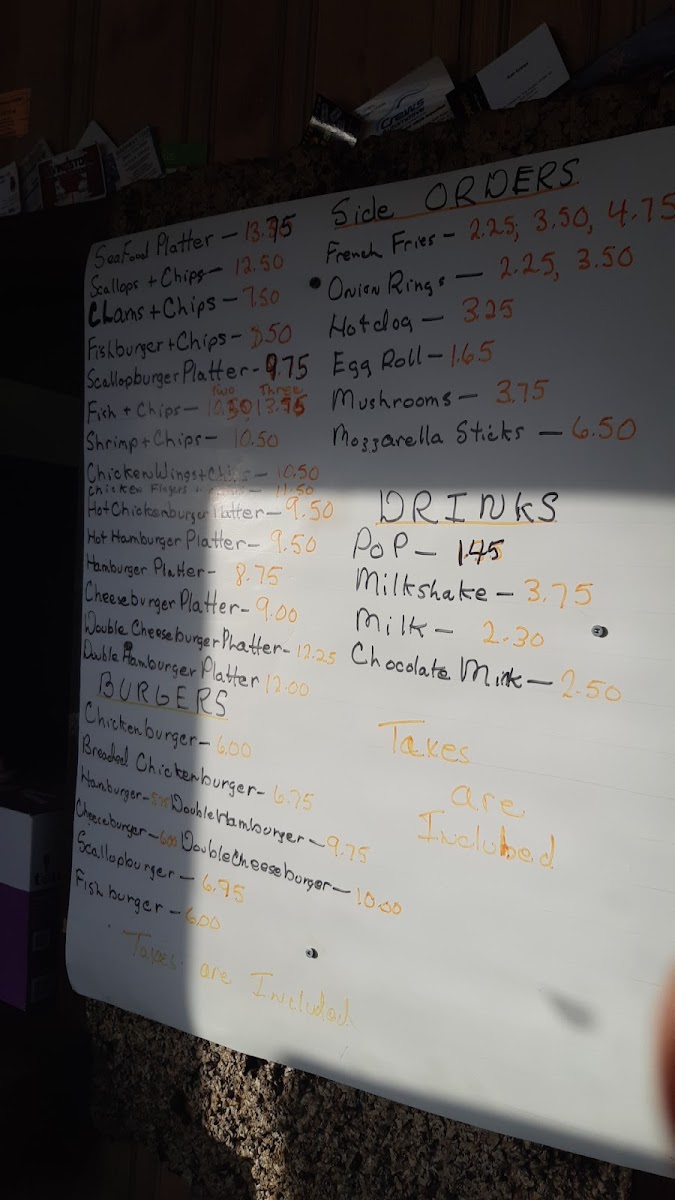 SeaFood Platter - 13.75
Scallops + Chips - 12.50
CLams + Chips - 7.50
Fishburger + Chips - 8.50
Scallopburger Platter - 9.75
Two Three
Fish + Chips - 10.50 13.75
Shrimp + Chips - 10.50
Chicken Wings + Chips - 10.50
Chicken Fingers + - 11.50
Hot Chickenburger Platter - 9.50
Hot Hamburger Platter - 9.50
Hamburger Platter - 8.75
Cheeseburger Platter - 9.00
Double Cheeseburger Phatter - 12.25
Double Hamburger Platter 12.00
BURGERS
Chickenburger - 6.00
Breaded Chickenburger - 6.75
Hamburger - 5.75 Double Hamburger - 9.75
Cheeseburger - 6.00 Double Cheeseburger - 10.00
Scallopburger - 6.95
Fish burger - 6.00
Taxes are Included
Side ORDERS
French Fries - 2.25, 3.50, 4.75
Onion Rings - 2.25, 3.50
Hotdog - 3.25
Egg Roll - 1.65
Mushrooms - 3.75
Mozzarella Sticks - 6.50
DRINKS
PoP - 1.45
Milkshake - 3.75
Milk - 2.30
Chocolate Milk - 2.50
Taxes
are
Included